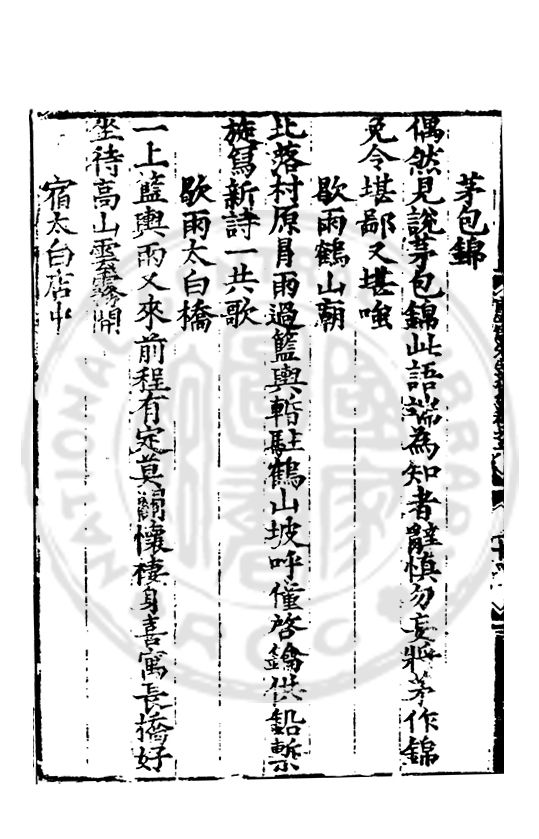 茅包錦
偶然見說茅包錦此語端為知者譬慎勿妄將茅作錦
免令堪鄙又堪嗤
歇雨鶴山廟
北落村原月雨過籃輿暫駐鶴山坡呼僮啓鑰供鉛槧
旋寫新詩一共歌
歇雨太白橋
一上籃輿雨又來前程有定莫關懷棲身喜寓長橋好
坐待高山雲霧開
宿太白店中